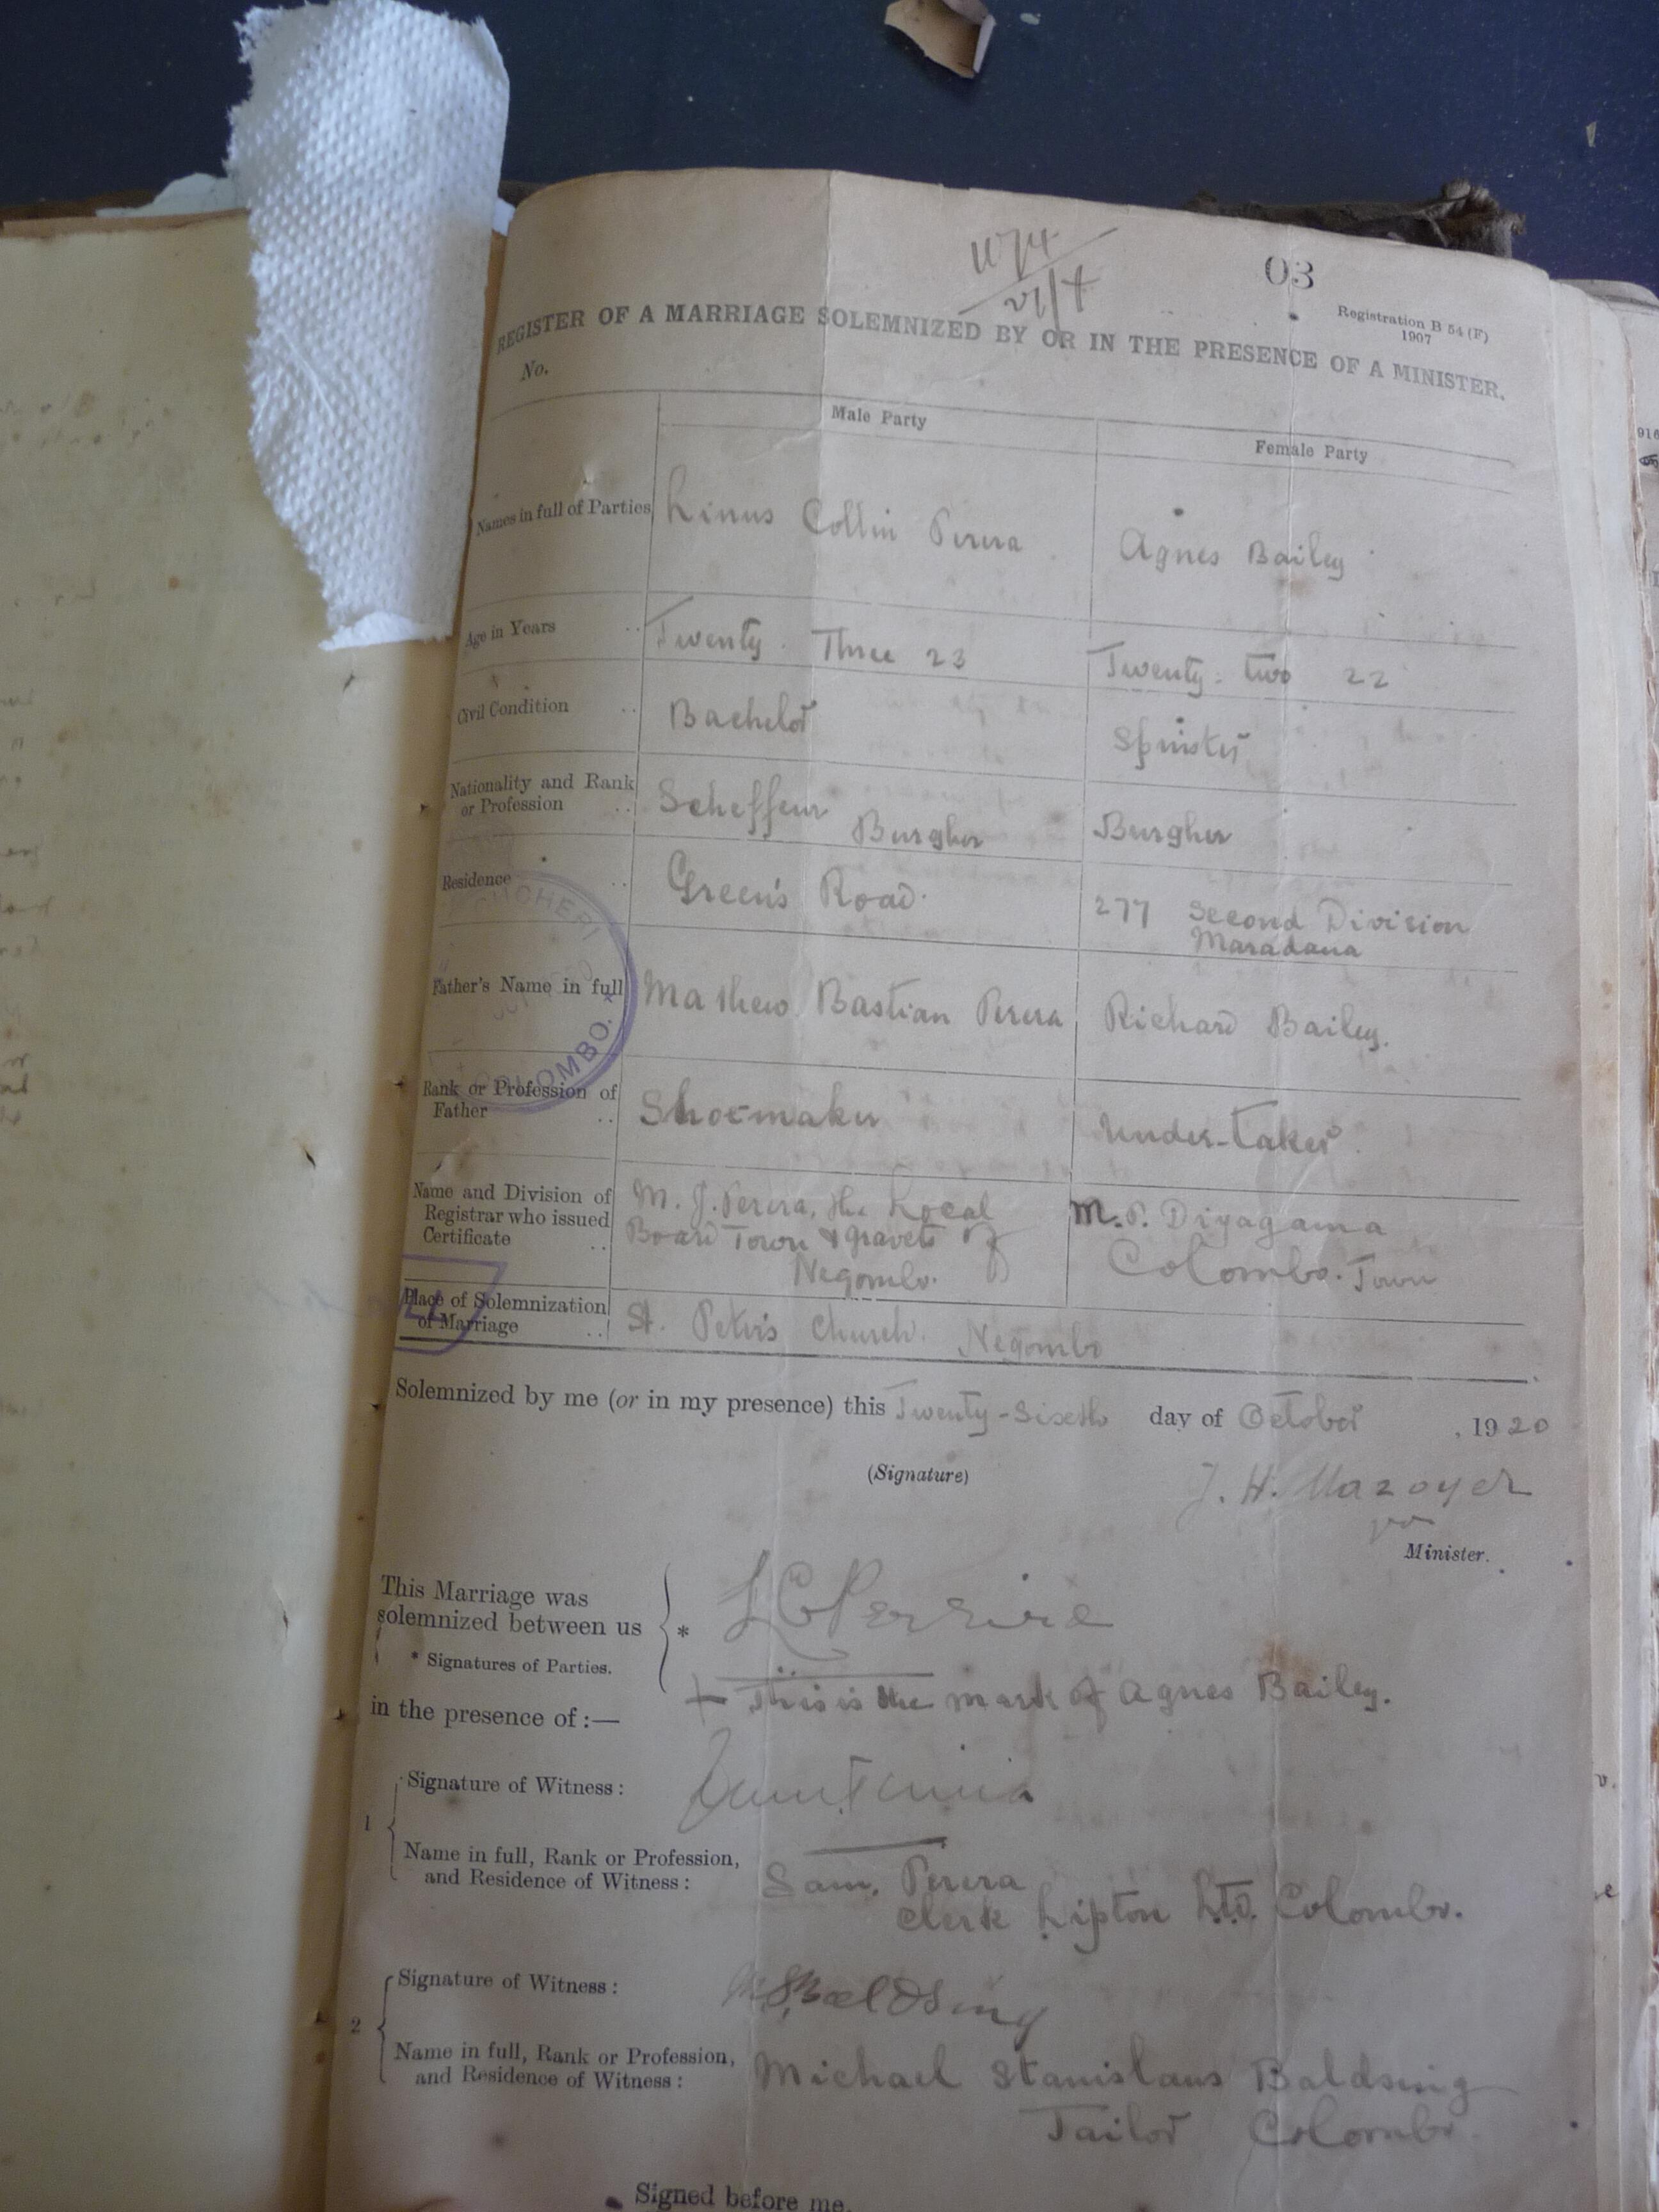 1174
21/4
03
Registration B 54 (F)
1907
REGISTER OF A MARRIAGE SOLEMNIZED BY OR IN THE PRESENCE OF A MINISTER.
No.
Male Party
Female Party
Names in full of Parties
Linus Collin Perera
Agnes Bailey
Age in Years
Twenty Three 23
Twenty-two 22
Civil Condition
Bachelor
Spinster
Nationality and Rank
or Profession
Scheffeur
Burgher
Burgher
Residence
Green's Road.
277 Second Division
Maradana
Father's Name in full
Mathew Bastian Perera
Richard Bailey.
Rank or Profession of
Father
Shoemaker
Under-taker
COLOMBO.
Name and Division of
Registrar who issued
Certificate
M. J. Perera, the Local
Board Town & gravets of
Negombo.
M. P. Diyagama
Colombo. Town
Place of Solemnization
of Marriage
St. Peter's Church. Negombo
Solemnized by me (or in my presence) this Twenty-Sixeth day of October, 1920
(Signature)
J. H. Mazoyer
Minister.
This Marriage was
solemnized between us
* Signatures of Parties.
*
L C Perreira
+ This is the mark of Agnes Bailey.
in the presence of :—
1
Signature of Witness :
Name in full, Rank or Profession,
and Residence of Witness :
Sam. Perera
Clerk Lipton Ltd. Colombo.
2
Signature of Witness :
M S Baldsing
Name in full, Rank or Profession,
and Residence of Witness :
Michael Stanislaus Baldsing
Tailor Colombo
Signed before me,